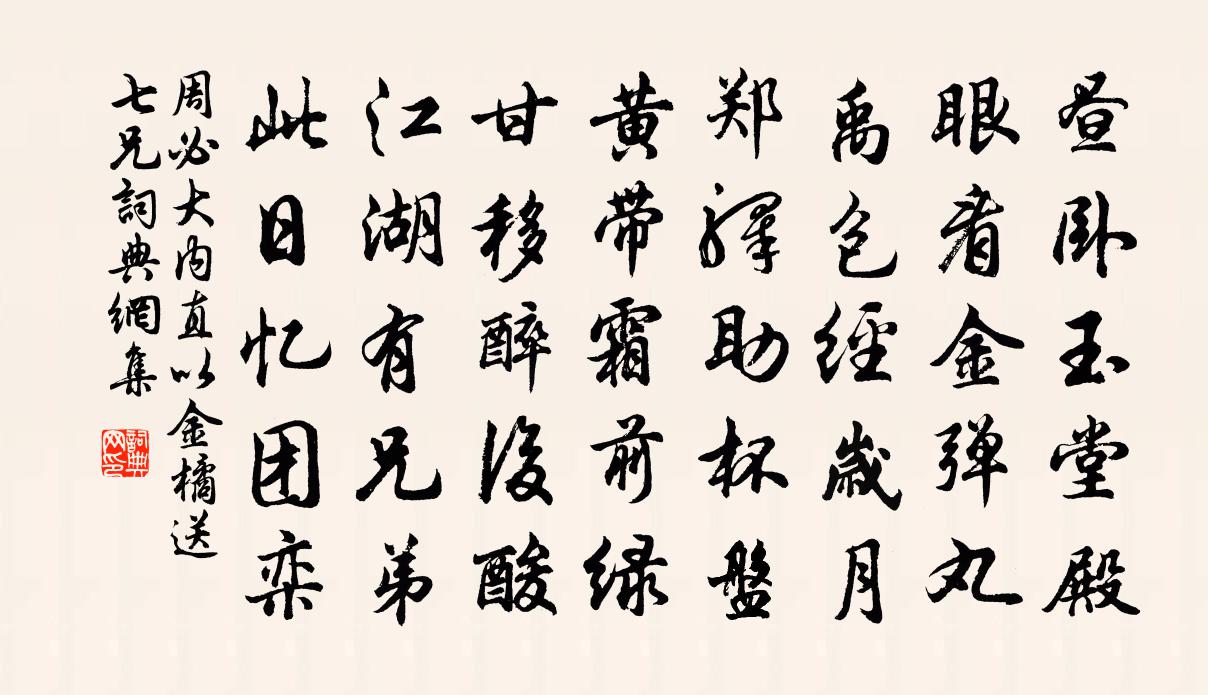 昼卧玉堂殿
眼看金弹丸
禹包經歲月
郑驛助杯盤
黄带霜前绿
甘移醉後酸
江湖有兄弟
此日忆团栾
周必大内直以金橘送
七兄詞典網集
詞典网印